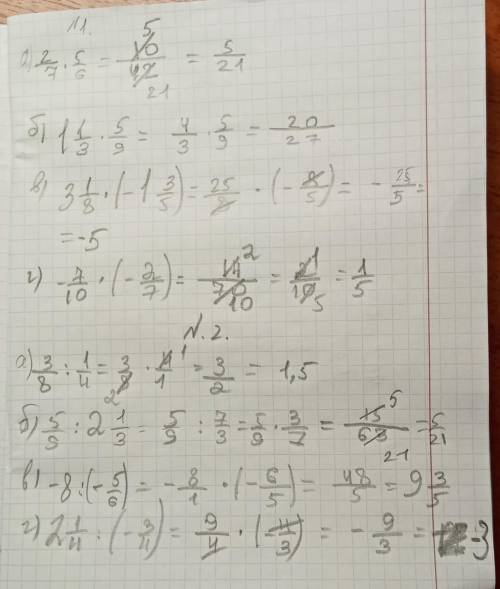 N1.
а) 2/7 · 5/6 = 10/42 5 21 = 5/21
б) 1 1/3 · 5/9 = 4/3 · 5/9 = 20/27
в) 3 1/8 · (-1 3/5) = 25/8 · (-8/5) = -25/5 =
= -5
г) -7/10 · (-2/7) = 14/70 2 10 = 2/10 1 5 = 1/5
N.2.
а) 3/8 : 1/4 = 3/8 2 · 4/1 1 = 3/2 = 1,5
б) 5/9 : 2 1/3 = 5/9 : 7/3 = 5/9 · 3/7 = 15/63 5 21 = 5/21
в) -8 : (-5/6) = -8/1 · (-6/5) = 48/5 = 9 3/5
г) 2 1/4 : (-3/4) = 9/4 · (-4/3) = -9/3 = -3